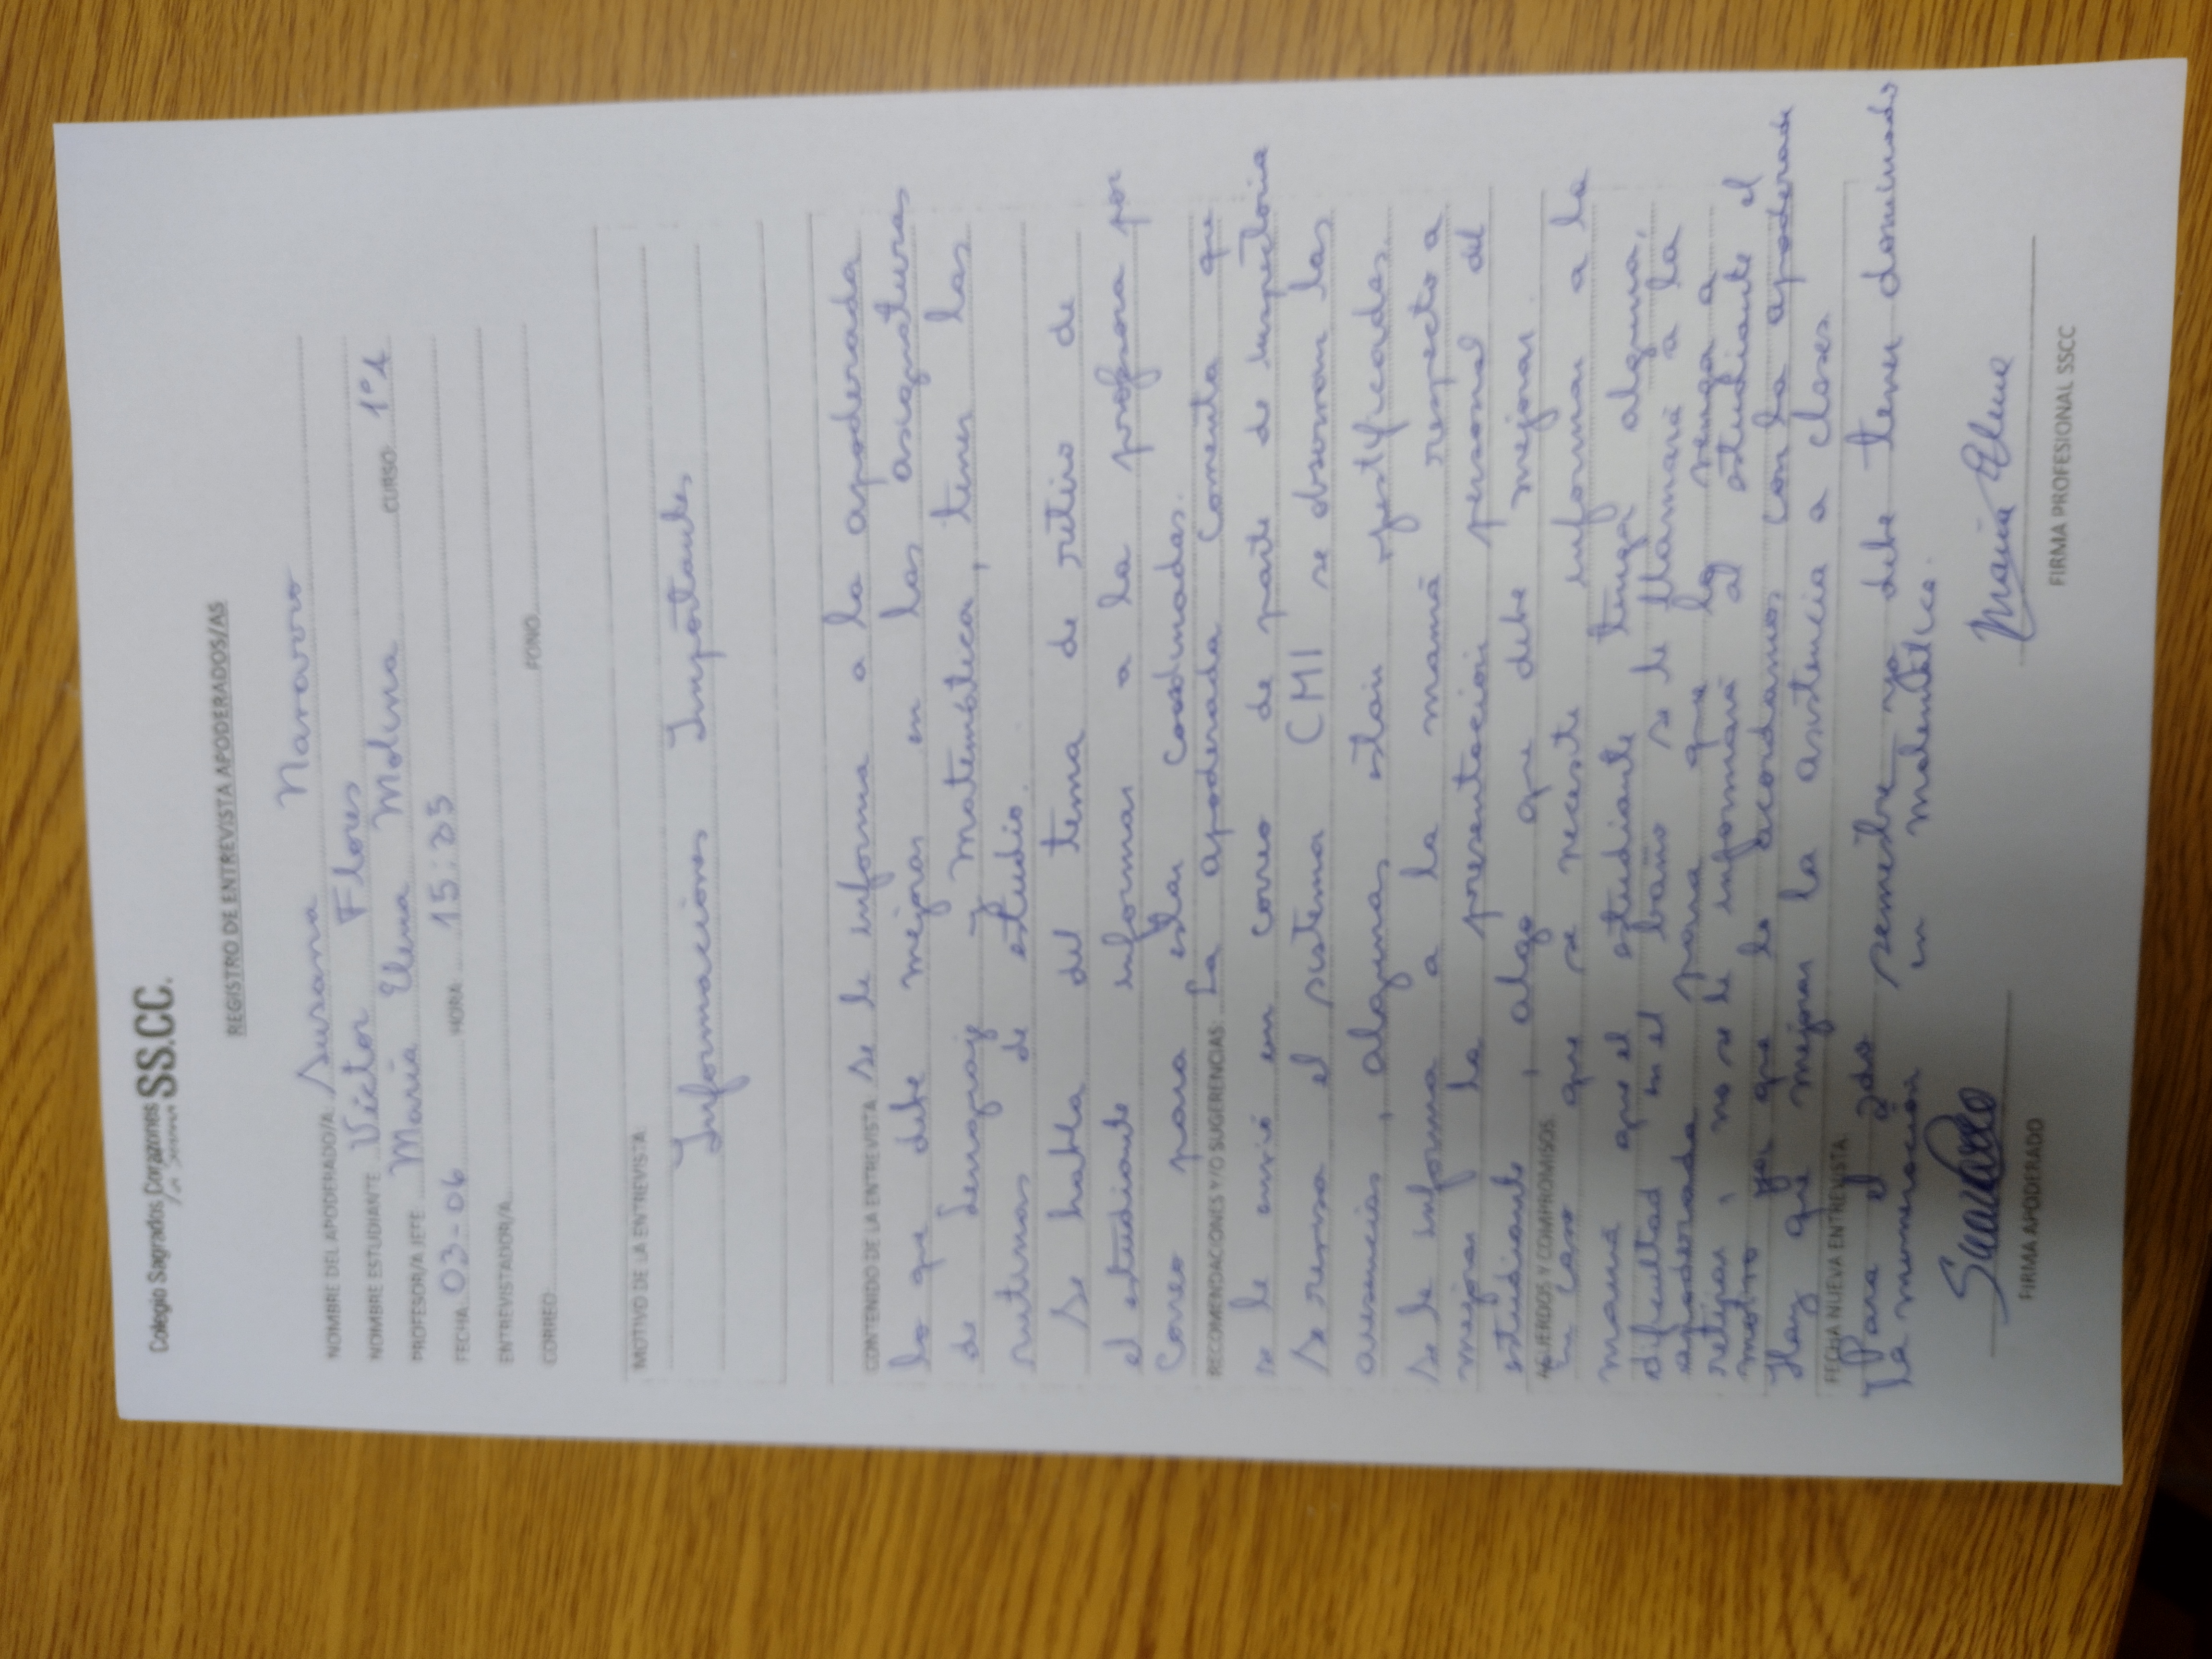 Colegio Sagrados Corazones SS.CC.
La Serena
REGISTRO DE ENTREVISTA APODERADOS/AS
NOMBRE DEL APODERADO/A: Susana Navarro
NOMBRE ESTUDIANTE Víctor Flores
PROFESOR/A JEFE María Elena Molina CURSO: 1°A
FECHA: 03-06 HORA: 15:25
ENTREVISTADOR/A
CORREO: FONO
MOTIVO DE LA ENTREVISTA:
Informaciones Importantes
CONTENIDO DE LA ENTREVISTA: Se le informa a la apoderada
lo que debe mejorar en las asignaturas
de Lenguaje y Matemática, tener las
rutinas de estudio.
Se habla del tema de retiro de
el estudiante informar a la profesora por
correo para estar coordinadas.
RECOMENDACIONES Y/O SUGERENCIAS: La apoderada comenta que
se le envió un correo de parte de Inspectoría
Se revisa el sistema CMI se observan las
ausencias, algunas están justificadas.
Se le informa a la mamá respecto a
mejorar la presentación personal del
estudiante, algo que debe mejorar.
ACUERDOS Y COMPROMISOS
En caso que se necesite informar a la
mamá que el estudiante tenga alguna,
dificultad en el baño se le llamará a la
apoderada para que lo venga a
retirar, no se le informará al estudiante el
motivo por que lo acordamos con la apoderada
Hay que mejorar la asistencia a clases.
FECHA NUEVA ENTREVISTA
Para el 2do semestre ya debe tener dominado
la numeración en matemática.
FIRMA APODERADO
María Elena
FIRMA PROFESIONAL SSCC